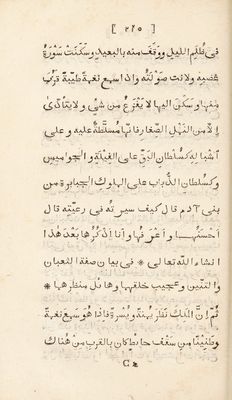 [ ٢٢٥ ]
في ظُلَم الليل ووقف منه بالبعيد وسكنت سَوْرَة
غضبه ولانت صولته وإذا سمع نغمة طيبة قرُب
منها وسكن اليها لا يفزع من شي ولا يتأذَّى
إلا من النمل الصغار فانّها مسلَّطة عليه وعلى
اشباله كسلطان البقّ على الفِيَلَة والجواميس
وكسلطان الذُّباب على الملوك الجبابرة من
بني آدم قال كيف سيرته في رعيّته قال
احسنها واعرفها وأنا أذكرها بعد هذا
انشاء الله تعالى * في بيان صفة الثعبان
والتنين وعجيب خلقها وهائل منظرها *
ثمّ إنّ الملك نظر يمنة ويسرة فإذا هو سمع نغمة
وطنينًا من سقف حائط كان بالقرب من هناك